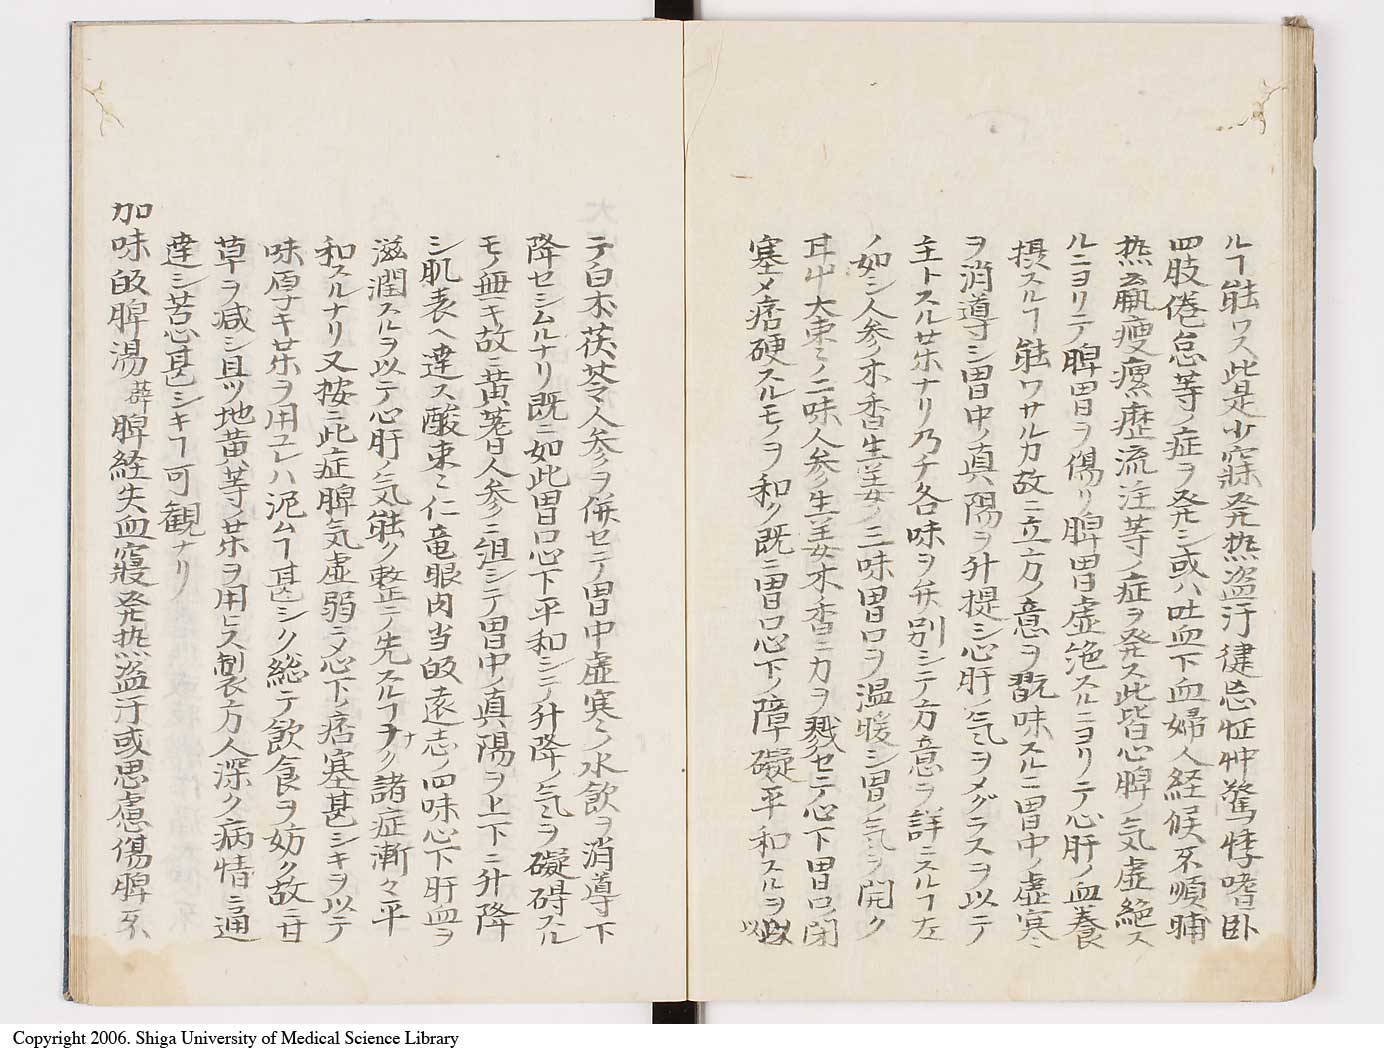 ルヿ能ワス此是少寐発熱盗汗健忘怔忡驚悸嗜卧
四肢倦怠等ノ症ヲ発シ或ハ吐血下血婦人経候不順晡
熱羸瘦瘰癧流注等ノ症ヲ発ス此皆心脾ノ気虚絶ス
ルニヨリテ脾胃ヲ傷リ脾胃虚絶スルニヨリテ心肝ノ血養
摂スルヿ能ワサルカ故ニ立方ノ意ヲ翫味スルニ胃中ノ虚寒
ヲ消導シ胃中ノ真陽ヲ升提シ心肝ノ気ヲメグラスヲ以テ
主トスル薬ナリ乃チ各味ヲ弁別シテ方意ヲ詳ニスルヿ左
ノ如シ人参木香生姜ノ三味胃口ヲ温暖シ胃ノ気ヲ開ク
甘艸大棗ノ二味人参生姜木香ニ力ヲ戮セテ心下胃口ノ閉
塞メ痞硬スルモノヲ和ク既ニ胃口心下ノ障礙平和スルヲ以
テ白朮茯苓人参ヲ併セテ胃中虚寒ノ水飲ヲ消導下
降セシムルナリ既ニ如此胃口心下平和シテ升降ノ気ヲ礙碍スル
モノ無キ故ニ黄蓍人参ニ組シテ胃中ノ真陽ヲ上下ニ升降
シ肌表ヘ達ス酸棗仁竜眼肉当皈遠志ノ四味心下肝血ヲ
滋潤スルヲ以テ心肝ノ気能ク整テ先スルヿナク諸症漸々平
和スルナリ又按ニ此症脾気虚弱ニメ心下ノ痞塞甚シキヲ以テ
味厚キ薬ヲ用ユレハ泥ムヿ甚シク総テ飲食ヲ妨ク故ニ甘
草ヲ減シ且ツ地黄等ノ薬ヲ用ヒス製方人深ク病情ニ通
達シ苦心甚シキヿ可観ナリ
加味皈脾湯 薜 脾経失血寤寐発熱盗汗或思慮傷脾不